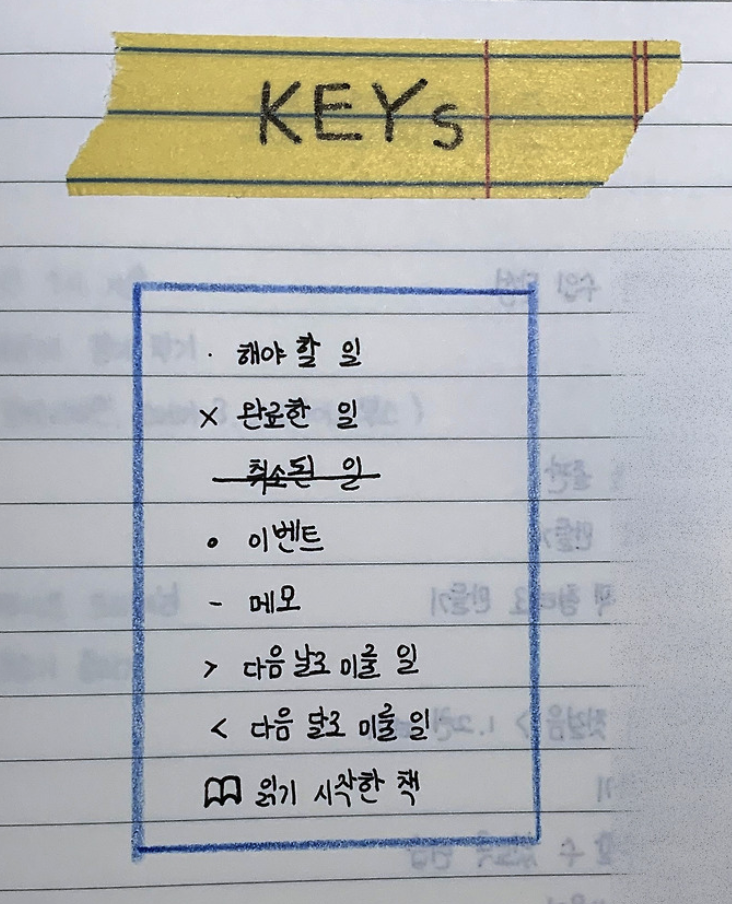 KEYs
· 해야 할 일
× 완료한 일
취소된 일
∘ 이벤트
- 메모
> 다음 날로 미룰 일
< 다음 달로 미룰 일
📖 읽기 시작한 책